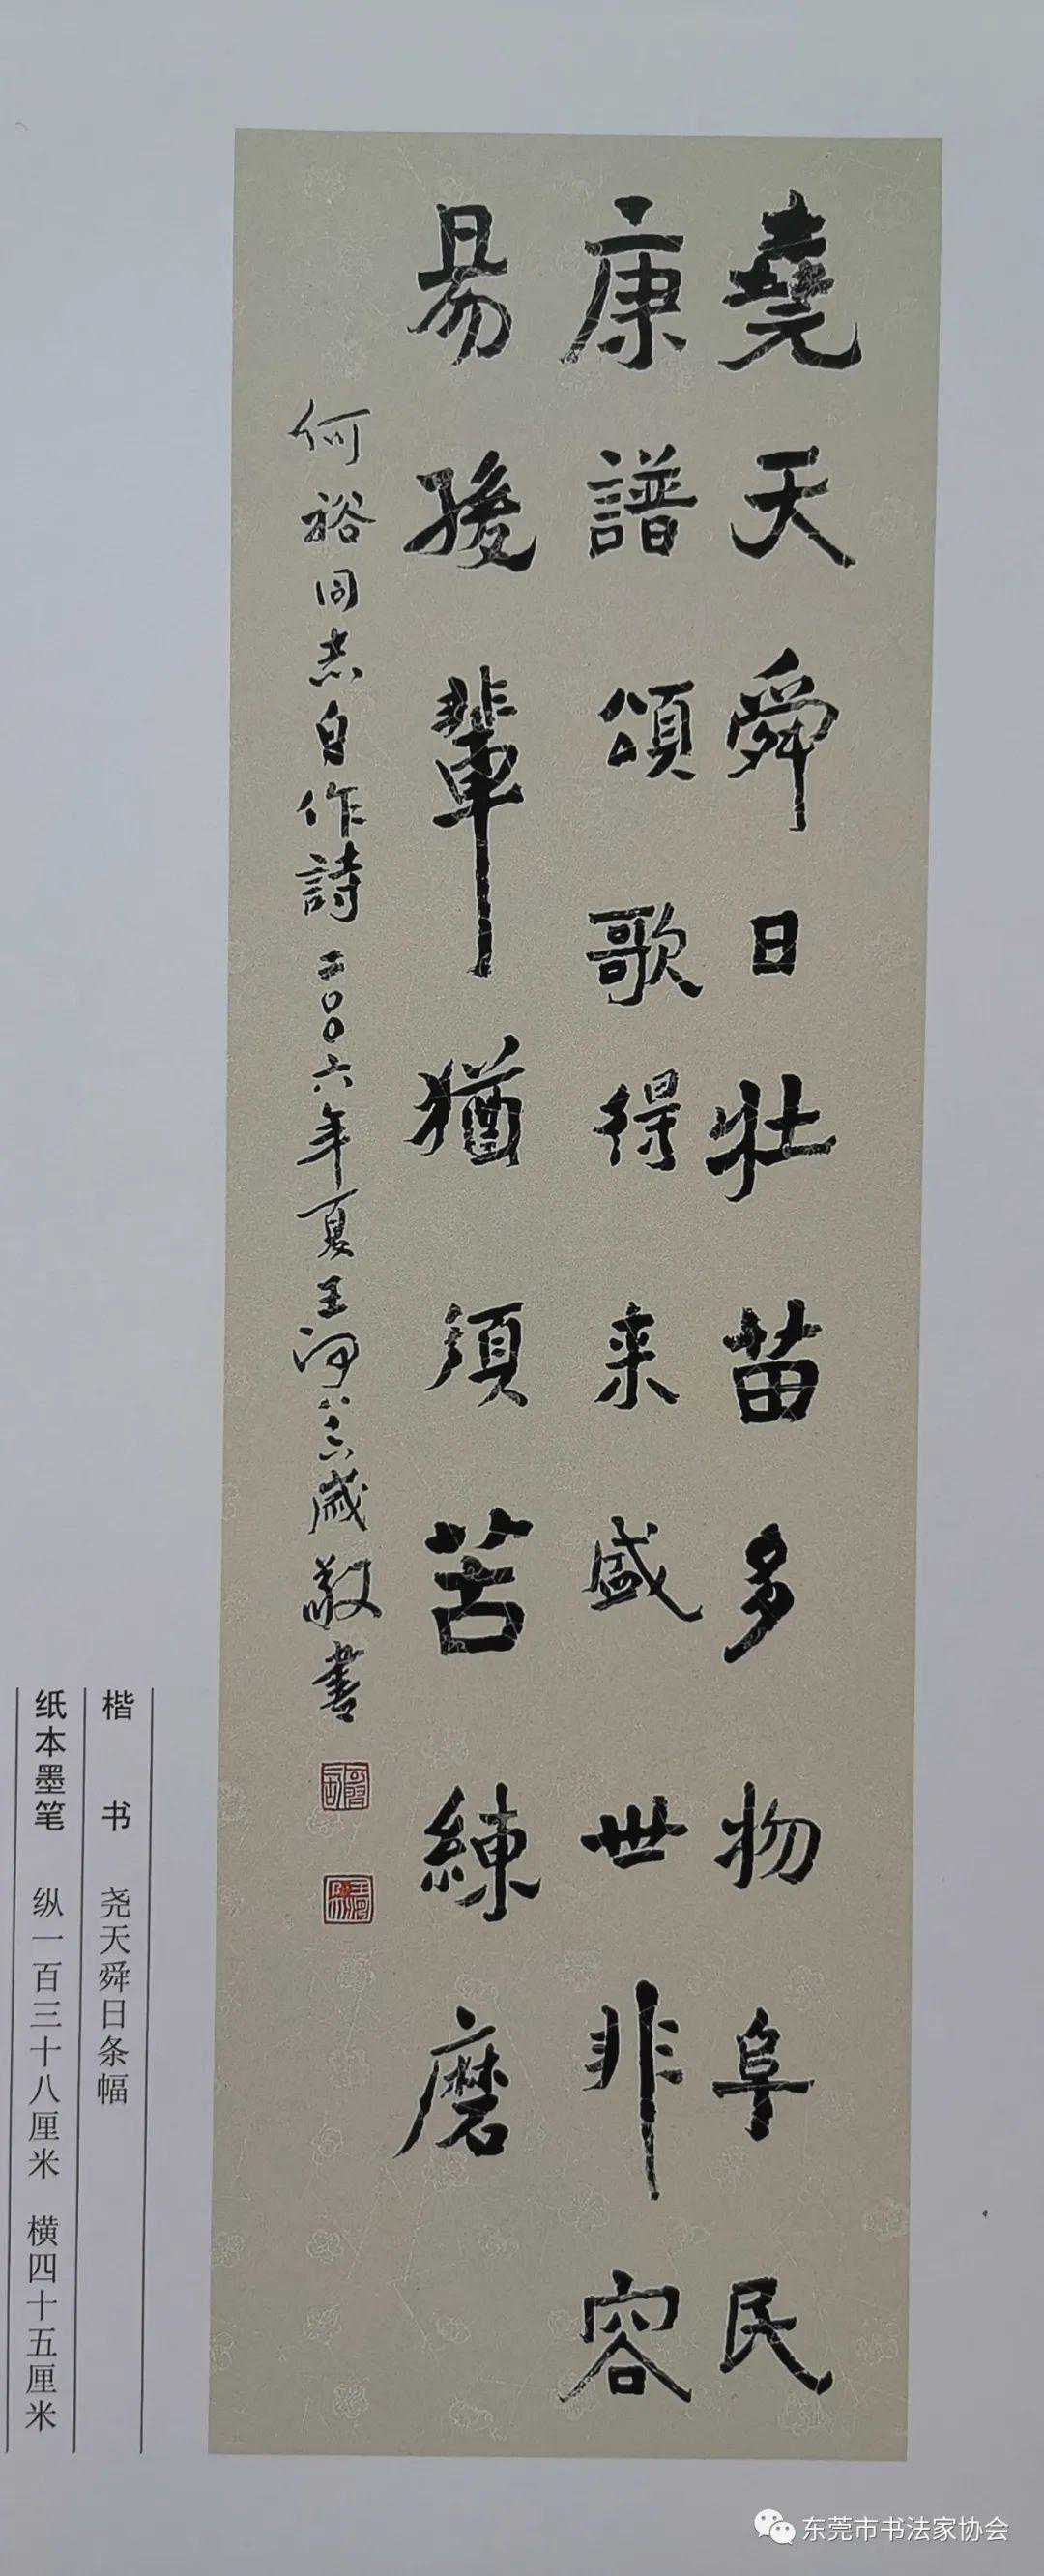 堯天舜日壯苗多物阜民
康譜頌歌得来盛世非容
易後輩猶須苦練磨
何裕同志自作詩二〇〇六年夏王河八十六歲敬書
楷书 尧天舜日条幅
纸本墨笔 纵一百三十八厘米 横四十五厘米
东莞市书法家协会